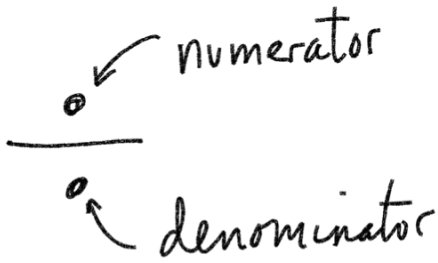 numerator
denominator